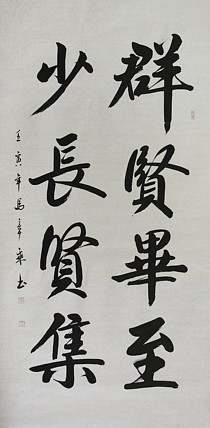 群賢畢至
少長賢集
壬寅年馬书